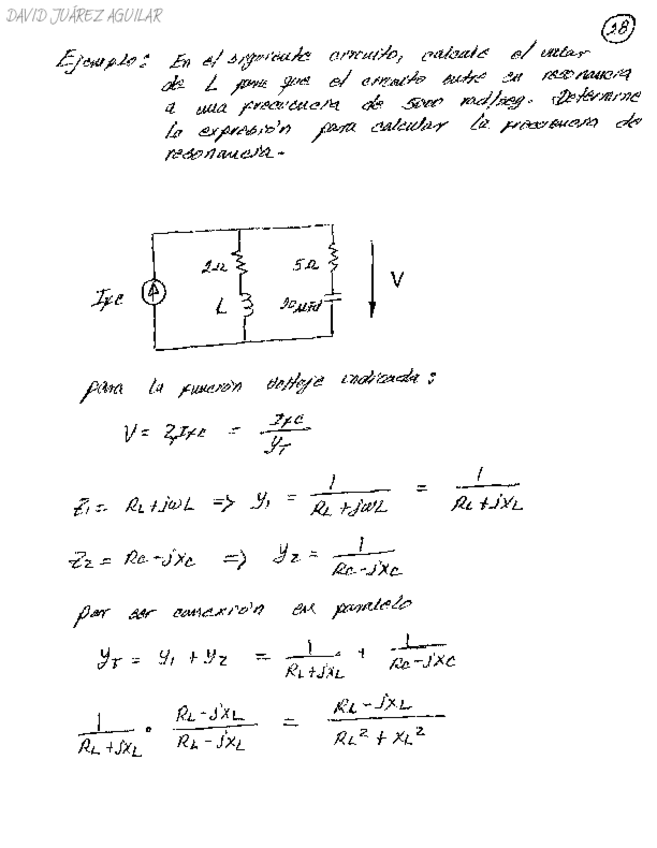 DAVID JUÁREZ AGUILAR
28
Ejemplo: En el siguiente circuito, calcule el valor
de L para que el circuito entre en resonancia
a una frecuencia de 5000 rad/seg. Determine
la expresión para calcular la frecuencia de
resonancia.
2Ω 5Ω
V
L
para la función voltaje indicada:
Z1 = RL + jωL => Y1 = 1/(RL + jωL) = 1/(RL + jXL)
Z2 = RC - jXC => Y2 = 1/(RC - jXC)
por ser conexión en paralelo
YT = Y1 + Y2 = 1/(RL + jXL) + 1/(RC - jXC)
1/(RL + jXL) · (RL - jXL)/(RL - jXL) = (RL - jXL)/(RL² + XL²)